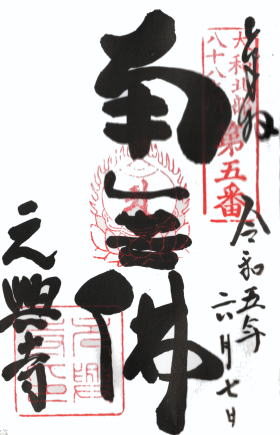 奉拝
大和北部
八十八
第五番
令和五年
六月七日
南無佛
元興寺